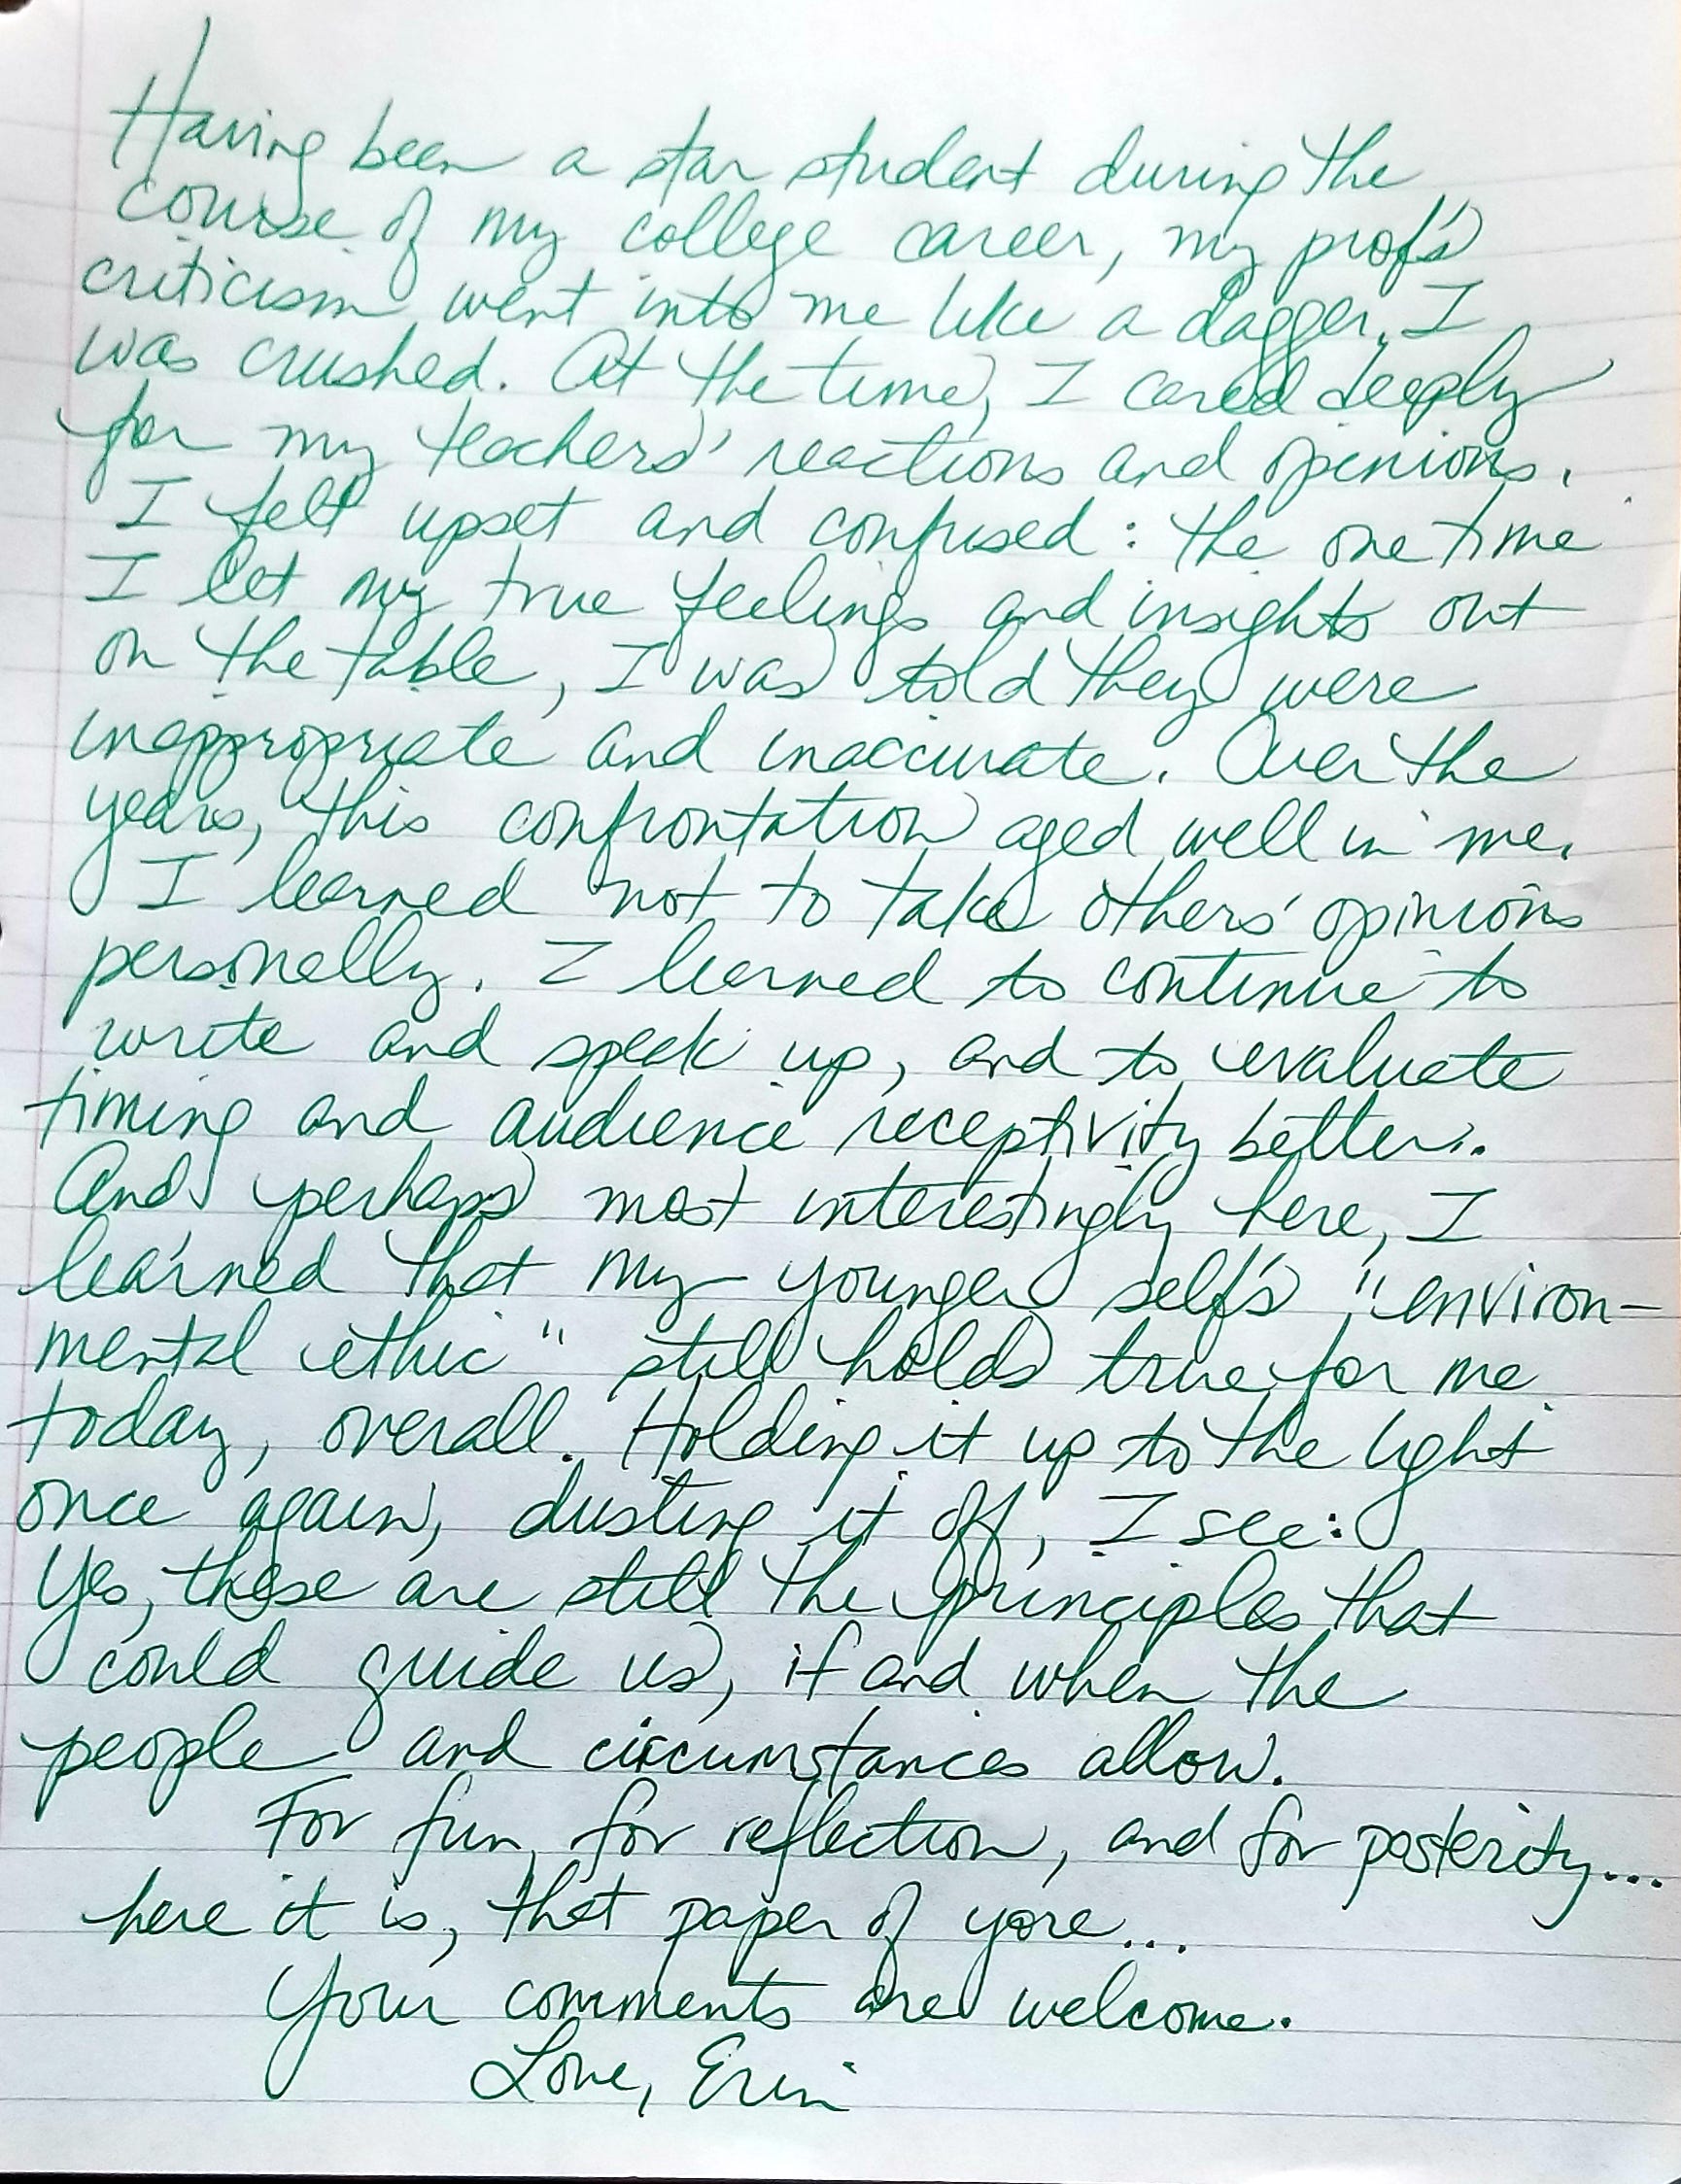 Having been a star student during the
course of my college career, my prof's
criticism went into me like a dagger. I
was crushed. At the time, I cared deeply
for my teachers' reactions and opinions.
I felt upset and confused: the one time
I let my true feelings and insights out
on the table, I was told they were
inappropriate and inaccurate. Over the
years, this confrontation aged well in me.
I learned not to take others' opinions
personally. I learned to continue to
write and speak up, and to evaluate
timing and audience receptivity better.
And perhaps most interestingly here, I
learned that my younger self's "environ-
mental ethic" still holds true for me
today, overall. Holding it up to the light
once again, dusting it off, I see:
Yes, these are still the principles that
could guide us, if and when the
people and circumstances allow.
For fun, for reflection, and for posterity...
here it is, that paper of yore...
Your comments are welcome.
Love, Erin